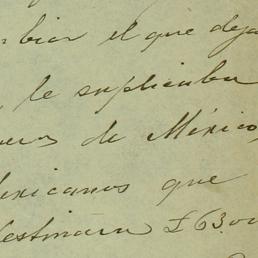 bior el que deja
, le suplicaba
de México,
exicanos que
destinara £6300